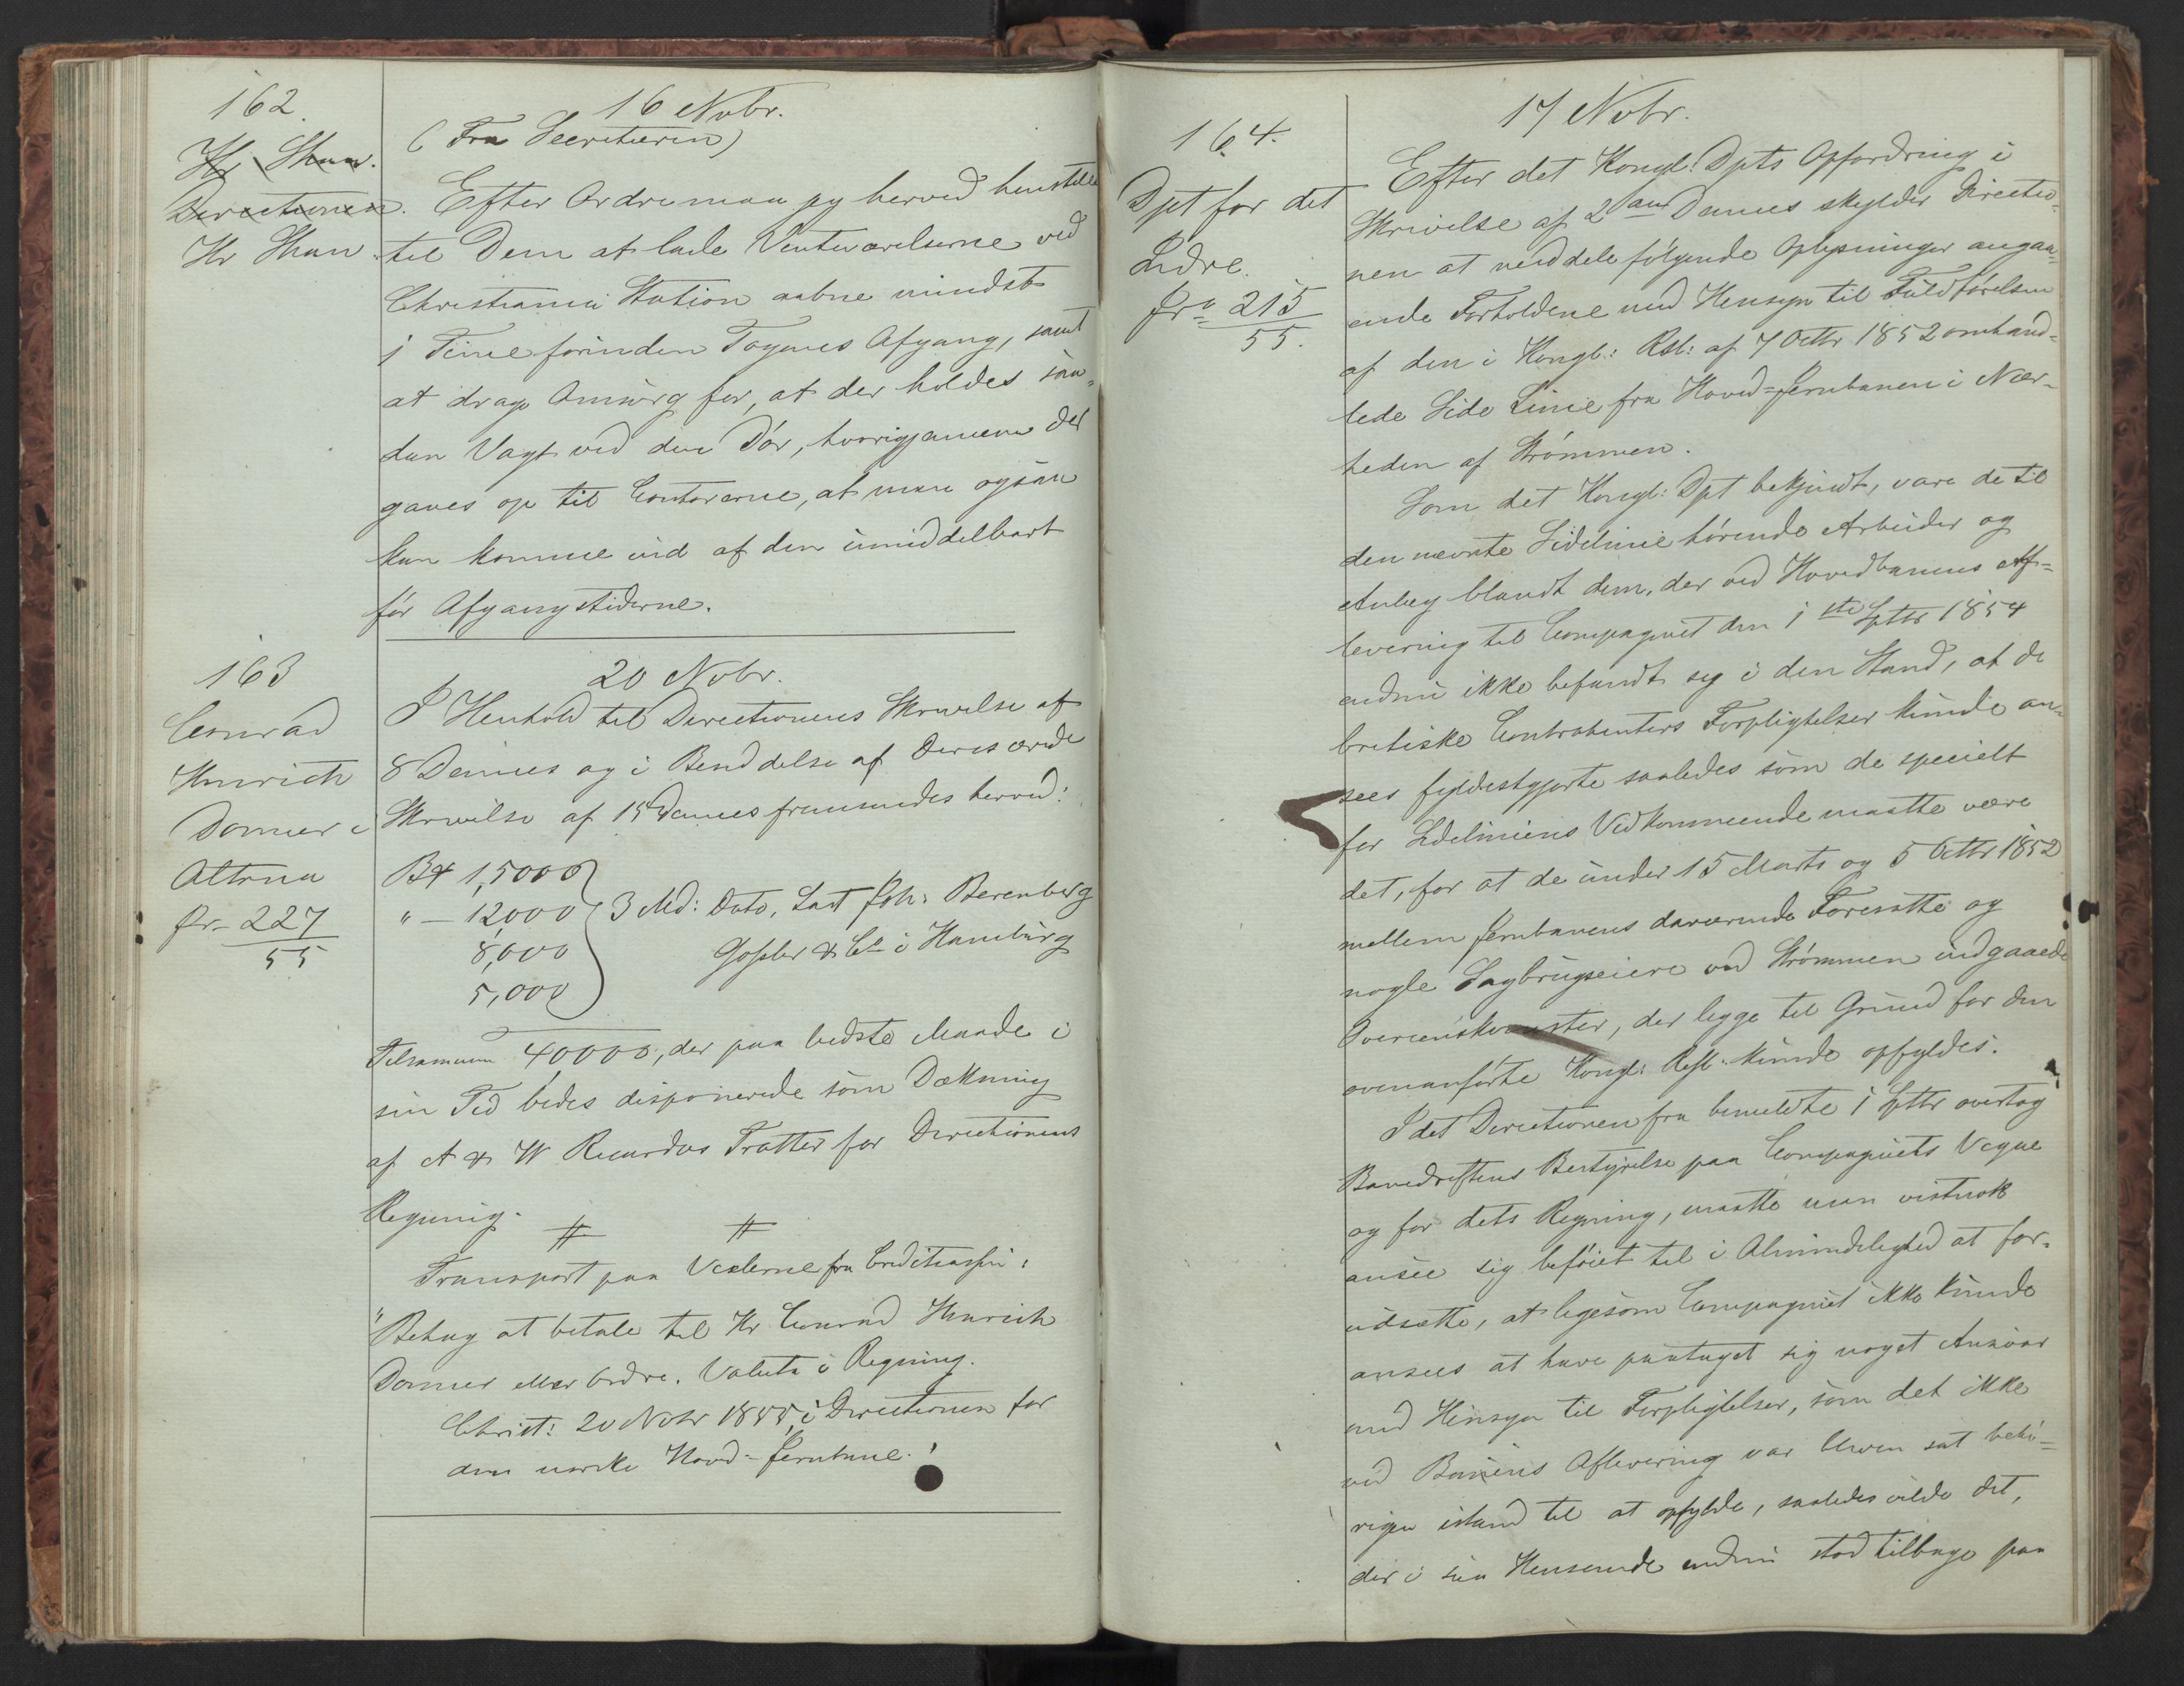 162.
Hr Shan.
Directionen.
Hr Shan.
16 Nvbr.
(Fra Secretæren)
Efter Ordre maa jeg herved henstille
til Dem at lade Venteværelserne ved
Christiania Station aabne mindst
1 Time förinden Togenes Afgang, samt
at drage Omsorg for, at der holdes saa-
dan Vagt ved den Dör, hvorigjennem der
gaaes op til Contorerne, at man ogsaa
kan komme ind af den umiddelbart
för Afgangstiderne.
163
Conrad
Hinrich
Donner i
Altona
Jr. 227
55
20 Nvbr.
I Henhold til Directionens Skrivelse af
8 Dennes og i Besiddelse af Deres ærede
Skrivelse af 15 Dennes fremsendes herved:
B# 15000
" — 12,000
8,000
5,000
3 Md: Dato, Last Joh: Berenberg
Gossler & Co i Hamburg
Tilsammen 40000, der paa bedste Maade i
sin Tid bedes disponerede som Dækning
af A & W Ricardos Tratter for Directionens
Regning.
# #
Transport paa Vexlerne fra Creditcassen:
"Behag at betale til Hr Conrad Hinrich
Donner eller Ordre. Valuta i Regning.
Christ: 20 Nvbr 1855, i Directionen for
den norske Hoved-Jernbane."
164.
Dpt for det
Indre.
Jrn 215
55.
17 Nvbr.
Efter det Kongl: Dpts Opfordring i
Skrivelse af 2den Dennes skylder Directio-
nen at meddele følgende Oplysninger angaa-
ende Forholdene med Hensyn til Fuldførelsen
af den i Kongl: Resl: af 7 Octbr 1852 omhand-
lede Side Linie fra Hoved-Jernbanen i Nær-
heden af Strømmen.
Som det Kongl: Dpt bekjendt, vare de til
den nævnte Sidelinie hørende Arbeider og
Anlæg blandt dem, der ved Hovedbanens Af-
levering til Compagniet den 1ste Sptbr 1854
endnu ikke befandt sig i den Stand, at de
britiske Contrahenters Forpligtelser kunde an-
sees fyldestgjorte saaledes som de specielt
for Sideliniens Vedkommende maatte være
det, for at de under 15 Marts og 5 Octbr 1852
mellem Jernbanens daværende Foresatte og
nogle Sagbrugseiere ved Strømmen indgaaede
Overenskomster, der ligge til Grund for den
ovenanførte Kongl: Resl: kunde opfyldes.
Idet Directionen fra bemeldte 1 Sptbr overtog
Banedriftens Bestyrelse paa Compagniets Vegne
og for dets Regning, maatte man vistnok
ansee sig beföiet til i Almindelighed at for-
udsætte, at ligesom Compagniet ikke kunde
ansees at have paataget sig noget Ansvar
med Hensyn til Forpligtelser, som det ikke
ved Banens Aflevering var bleven sat behö-
rigen istand til at opfylde, saaledes vilde det,
der i saa Henseende endnu stod tilbage paa